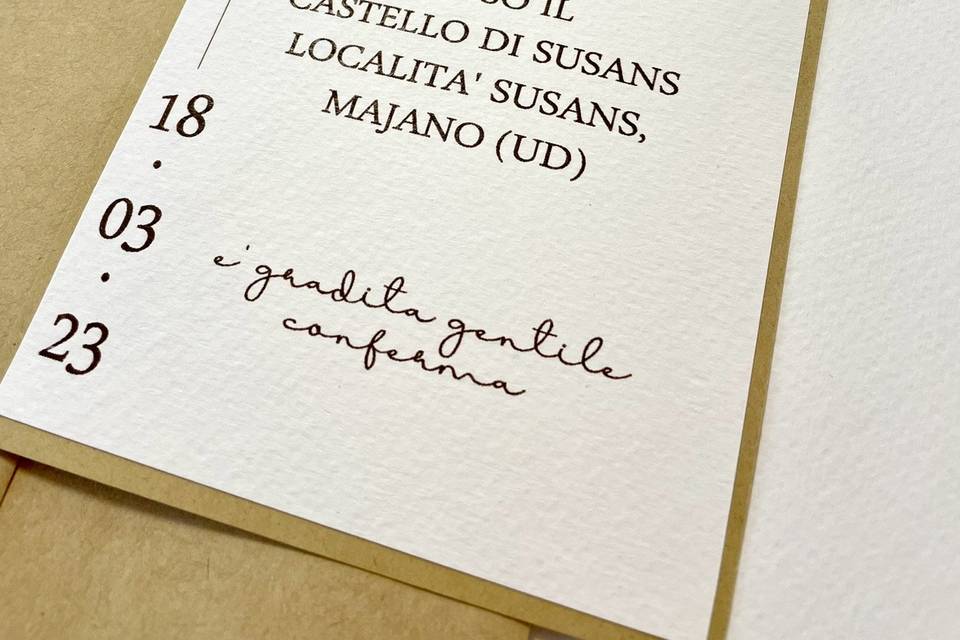 IL
CASTELLO DI SUSANS
LOCALITA' SUSANS,
MAJANO (UD)
18
.
03
.
23
e' gradita gentile
conferma